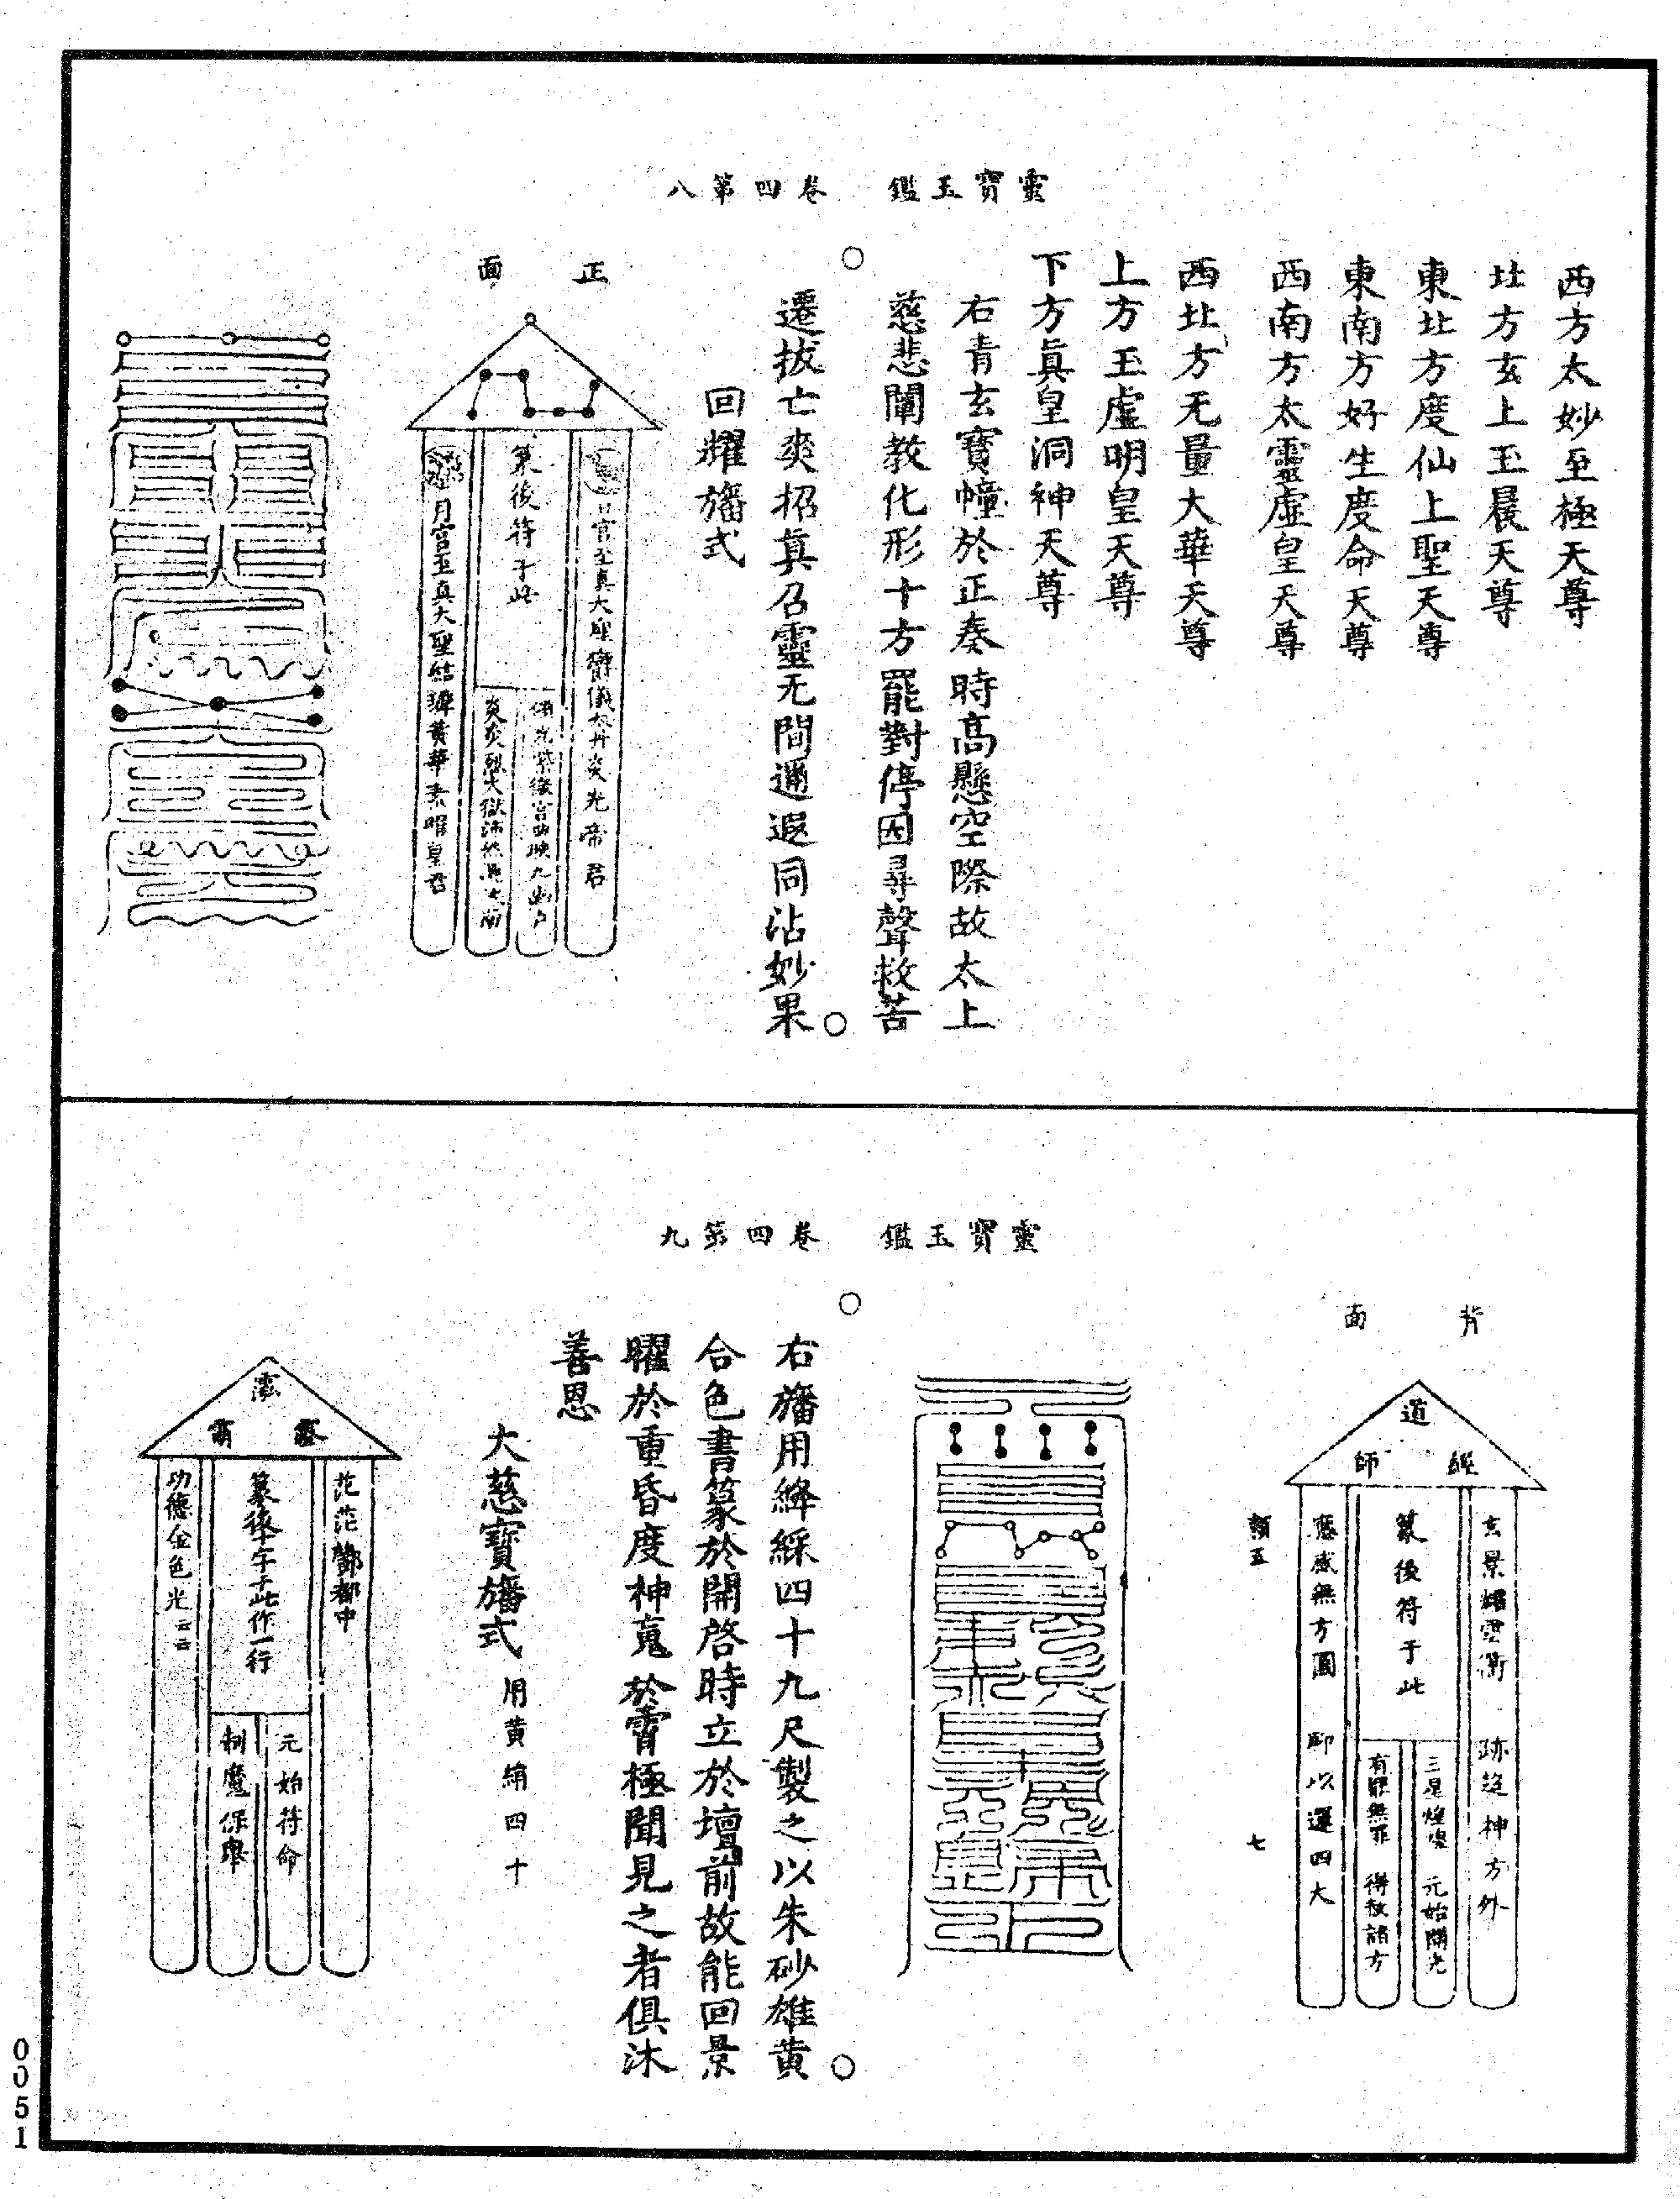 靈寶玉鑑　卷四第八
西方太妙至極天尊
北方玄上玉晨天尊
東北方度仙上聖天尊
東南方好生度命天尊
西南方太靈虛皇天尊
西北方无量大華天尊
上方玉虛明皇天尊
下方眞皇洞神天尊
右青玄寶幢於正奏時高懸空際故太上
慈悲闡教化形十方罷對停因尋聲救苦
遷拔亡爽招眞召靈无間邇遐同沾妙果
回耀旛式
正面
日宮至眞大聖鬱儀大丹炎光帝君
篆後符于此
炎炎烈火獄
月宮至眞大聖結璘黃華素曜皇君
靈寶玉鑑　卷四第九
背面
道經師
玄景耀雲衢　跡超神方外
篆後符于此
三星煌燦　元始開光
有罪無罪　得赦諸方
應感無方圓　聊以運四大
類五　七
右旛用絳綵四十九尺製之以朱砂雄黃
合色書篆於開啓時立於壇前故能回景
曜於重昏度神䰟於霄極聞見之者俱沐
善恩
大慈寶旛式　用黃絹四十
茫茫酆都中
篆後字于此作一行
元始符命
制魔保舉
功德金色光云云
0051